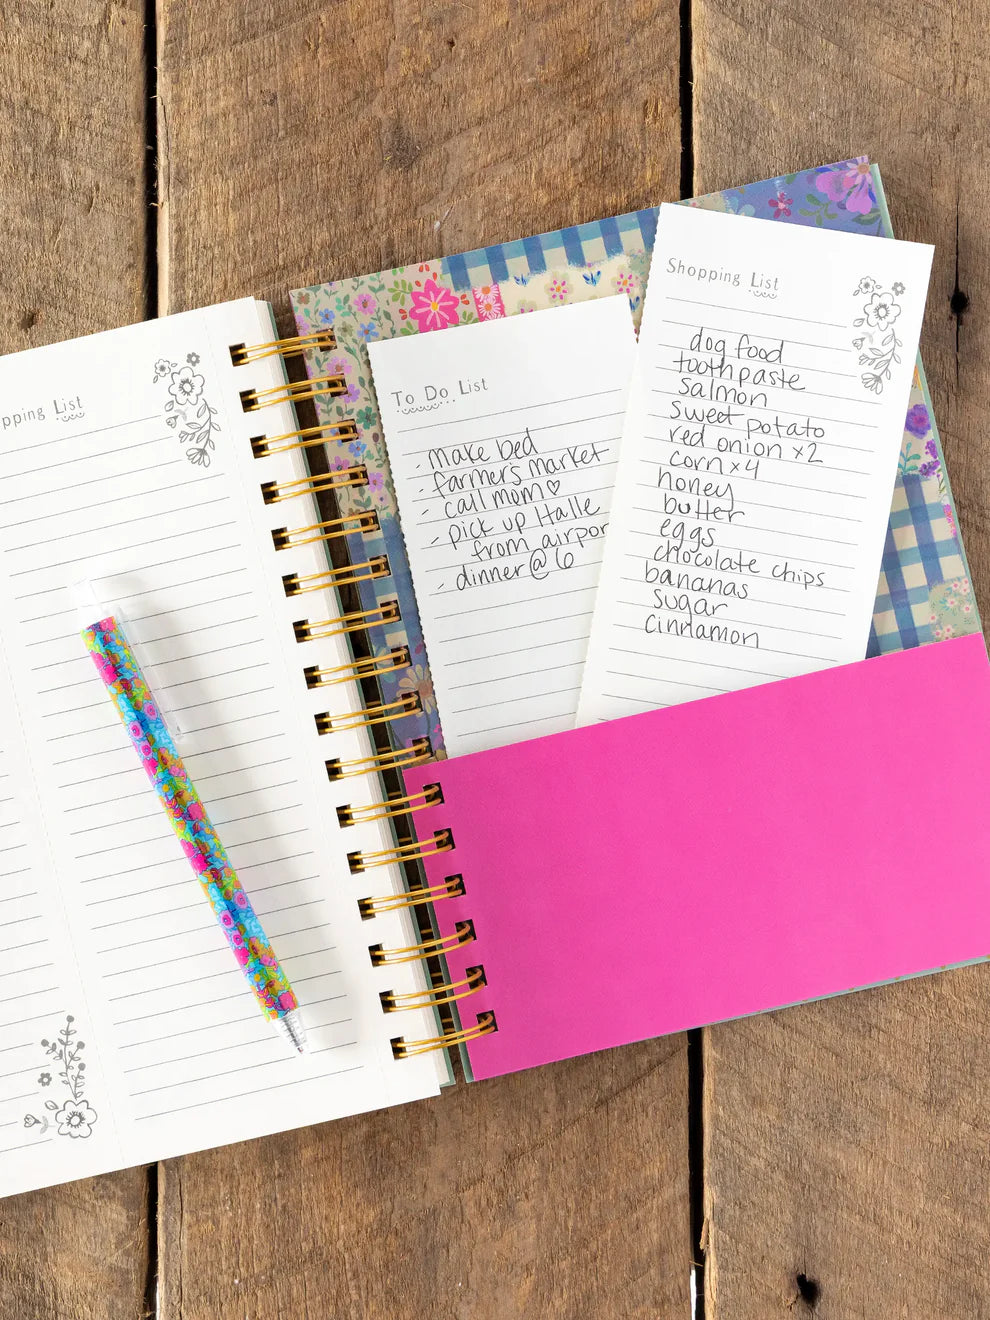 pping List
To Do List
- make bed
- farmers market
- call mom♡
- pick up Halle
from airpor
- dinner@6
Shopping List
dog food
toothpaste
salmon
sweet potato
red onion x2
corn x4
honey
butter
eggs
chocolate chips
bananas
sugar
cinnamon